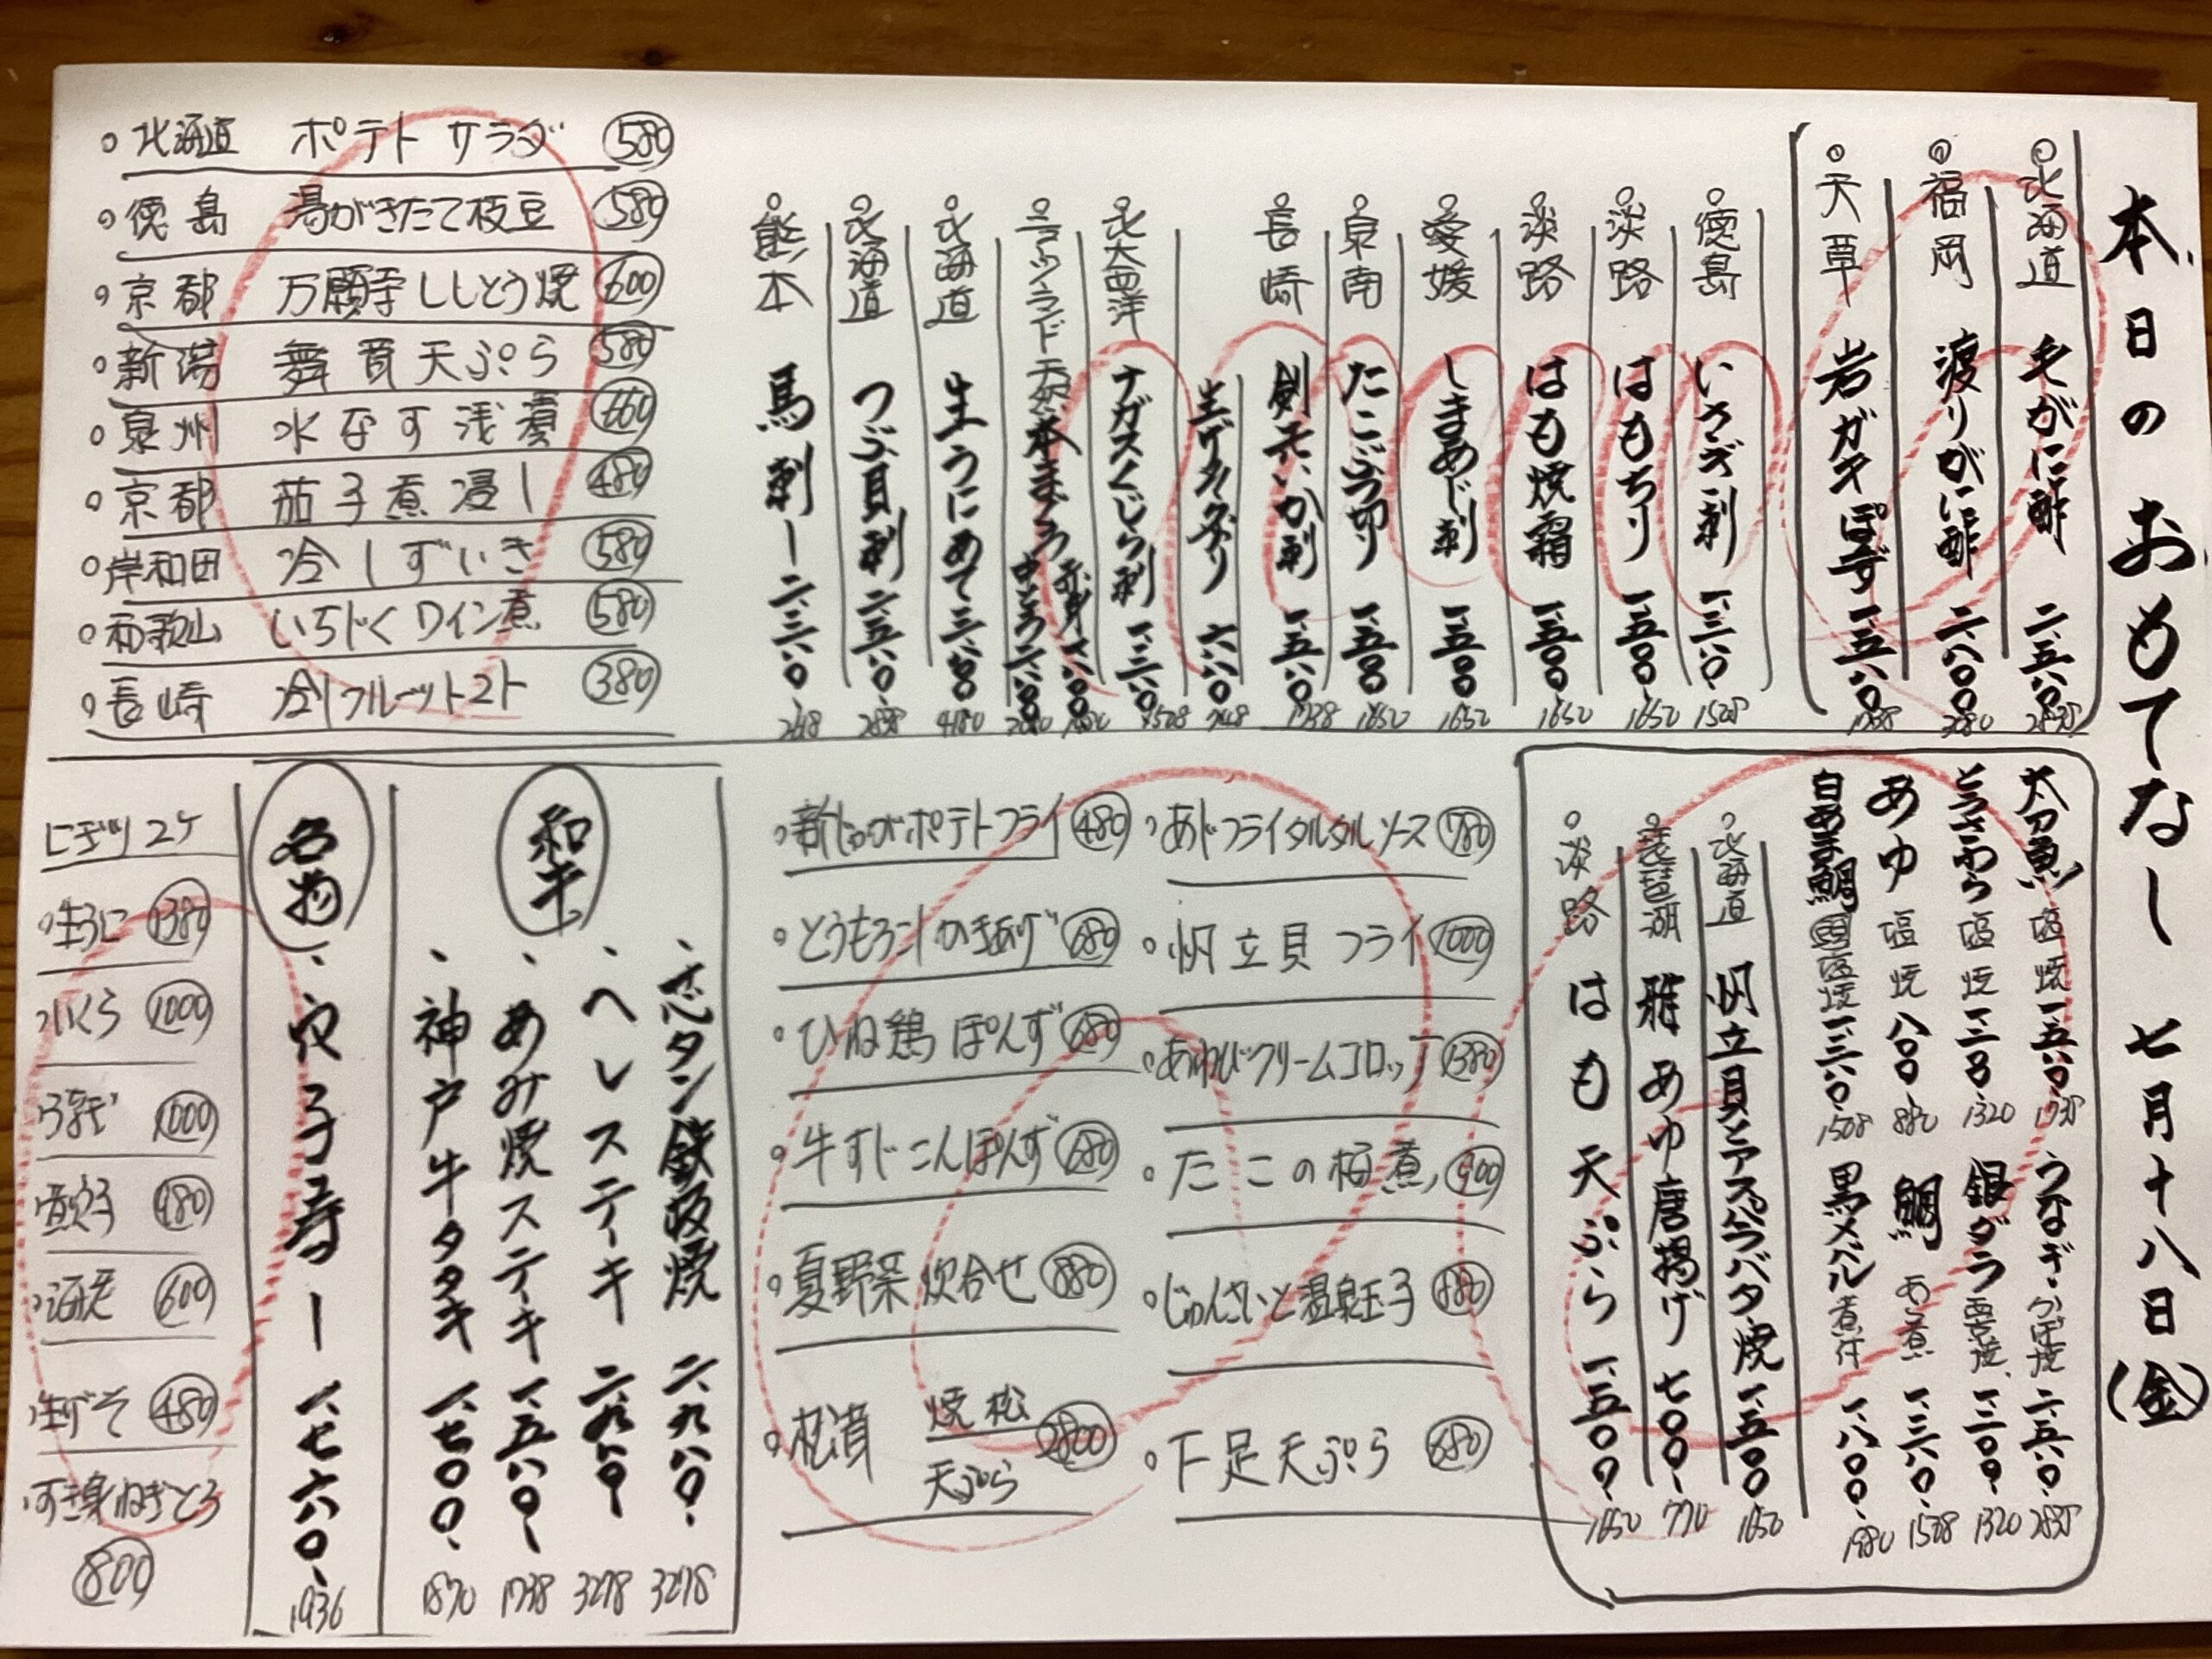 本日のおもてなし 七月十八日(金)
北海道 毛がに酢 二、五八〇 2838
福岡 渡りがに酢 二、八〇〇 3080
天草 岩ガキぽず 一、五八〇 1738
徳島 いさぎ刺 一、三八〇 1508
淡路 はもちり 一、五〇〇 1650
淡路 はも焼霜 一、五〇〇 1650
愛媛 しまあじ刺 一、五〇〇 1650
泉南 たこぶつ切り 一、五〇〇 1650
長崎 剣先いか刺 一、五八〇 1738
六八〇 748
北大西洋 ナガスくじら刺 一、三八〇 1508
天然本まぐろ 赤身 中とろ
北海道 生うにめて 三、八〇〇 4180
北海道 つぶ貝刺 二、五八〇 2838
熊本 馬刺し 二、三八〇 2618
北海道 ポテトサラダ 580
徳島 湯がきたて枝豆 580
京都 万願寺ししとう焼 600
新潟 舞茸天ぷら 580
泉州 水なす浅漬 660
京都 茄子煮浸し 480
岸和田 冷しずいき 580
和歌山 いちじくワイン煮 580
長崎 冷しフルーツトマト 380
太刀魚 塩焼 一、五八〇 1738
とろさわら 塩焼 一、二〇〇 1320
あゆ 塩焼 八〇〇 880
白あま鯛 塩焼 一、三八〇 1508
うなぎ かば焼 二、五八〇 2838
銀ダラ 西京焼 一、二〇〇 1320
鯛 あら煮 一、三八〇 1508
黒メバル 煮付 一、八〇〇 1980
北海道 帆立貝とアスパラバター焼 一、五〇〇 1650
琵琶湖 稚あゆ唐揚げ 七〇〇 770
淡路 はも天ぷら 一、五〇〇 1650
あじフライタルタルソース 780
帆立貝フライ 1000
あわびクリームコロッケ 1380
たこの柏煮 900
じゅんさいと温泉玉子 880
下足天ぷら 680
新じゃがポテトフライ 480
とうもろこしかきあげ 680
ひね鶏ぽんず 680
牛すじこんぽんず 680
夏野菜炊合せ 880
松茸 焼松 天ぷら 2800
和牛
芯タン鉄板焼 二、九八〇 3278
ヘレステーキ 二、九八〇 3278
あみ焼ステーキ 一、五八〇 1738
神戸牛タタキ 一、七〇〇 1870
名物
穴子寿し 一、七六〇 1936
にぎり2ケ
生うに 1380
いくら 1000
うなぎ 1000
煮穴子 980
海老 600
生げそ 480
すき身ねぎとろ
800